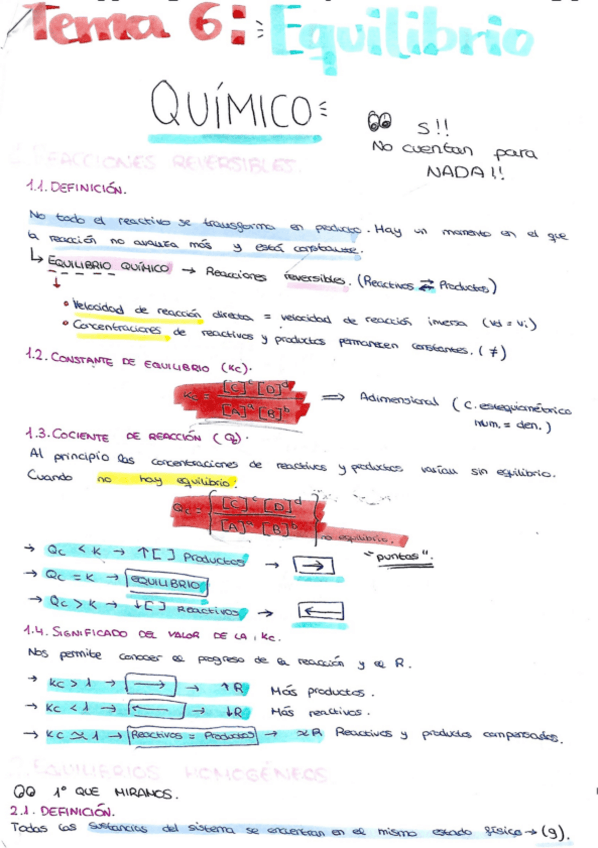 Tema 6: Equilibrio
QUÍMICO
S!!
No cuentan para
NADA!!
1. REACCIONES REVERSIBLES.
1.1. DEFINICIÓN.
No todo el reactivo se transforma en producto. Hay un momento en el que
la reacción no avanza más y está constante.
↳ EQUILIBRIO QUÍMICO → Reacciones reversibles. (Reactivos ⇄ Productos)
• Velocidad de reacción directa = velocidad de reacción inversa (vd = vi)
• Concentraciones de reactivos y productos permanecen constantes. (≠)
1.2. CONSTANTE DE EQUILIBRIO (Kc).
Kc = [C]^c [D]^d / [A]^a [B]^b ⇒ Adimensional (C. estequiométrico
num. = den.)
1.3. COCIENTE DE REACCIÓN (Q).
Al principio las concentraciones de reactivos y productos varían sin equilibrio.
Cuando no hay equilibrio:
Qc = [C]^c [D]^d / [A]^a [B]^b no equilibrio.
"puntas".
→ Qc < K → ↑[ ] Productos → →
→ Qc = K → EQUILIBRIO
→ Qc > K → ↓[ ] Reactivos → ←
1.4. SIGNIFICADO DEL VALOR DE LA Kc.
Nos permite conocer el progreso de la reacción y el R.
→ Kc > 1 → → → ↑R Más productos.
→ Kc < 1 → ← → ↓R Más reactivos.
→ Kc ≃ 1 → Reactivos = Productos → ≃R Reactivos y productos compensados.
2. EQUILIBRIOS HOMOGÉNEOS
1º QUE MIRAMOS.
2.1. DEFINICIÓN.
Todas las sustancias del sistema se encuentran en el mismo estado físico → (g).